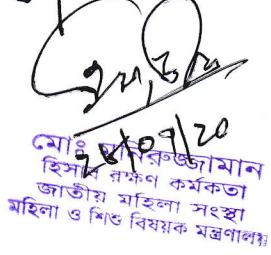 ২৮/০৭/২০
মোঃ মনিরুজ্জামান
হিসাব রক্ষণ কর্মকতা
জাতীয় মহিলা সংস্থা
মহিলা ও শিশু বিষয়ক মন্ত্রণালয়